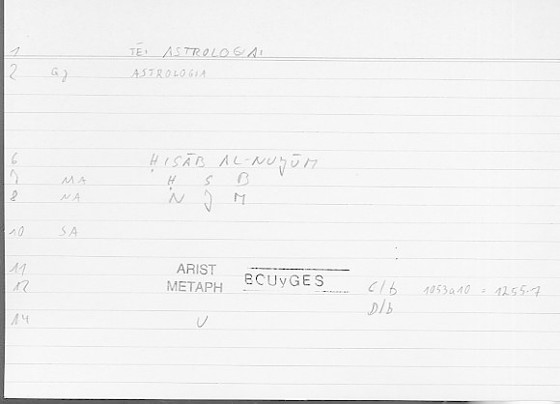 1 TĒI ASTROLOGIAI
2 Gj ASTROLOGIA
6 ḤISĀB AL-NUJŪM
7 MA Ḥ S B
8 NA N J M
10 SA
11 ARIST
12 METAPH BOUyGES C/b 1053a10 = 1255.7
D/b
14 V